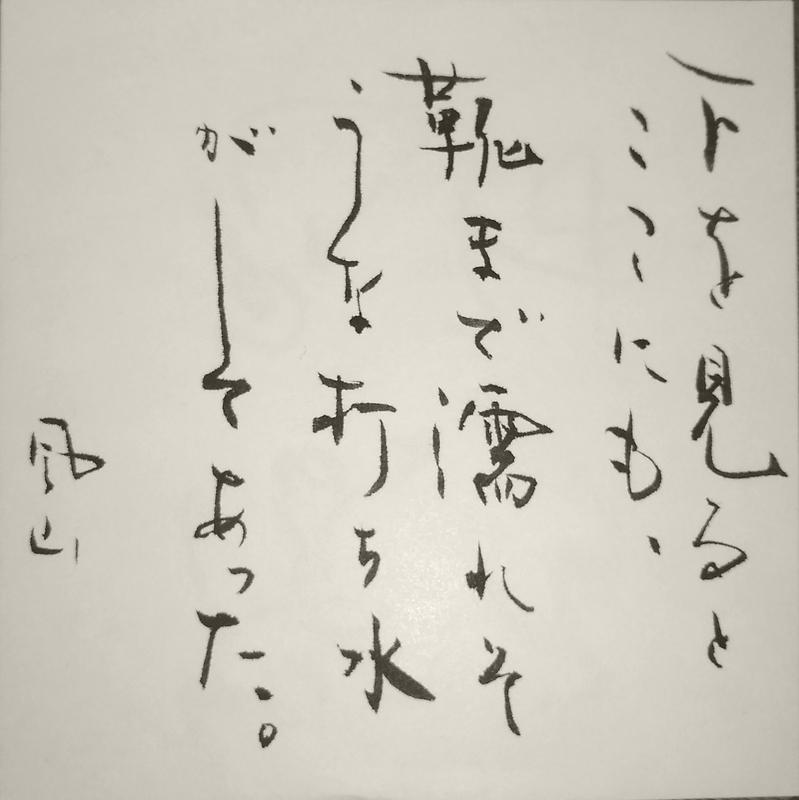 下を見ると
ここにも、
靴まで濡れそ
うな打ち水
がしてあった。
風山